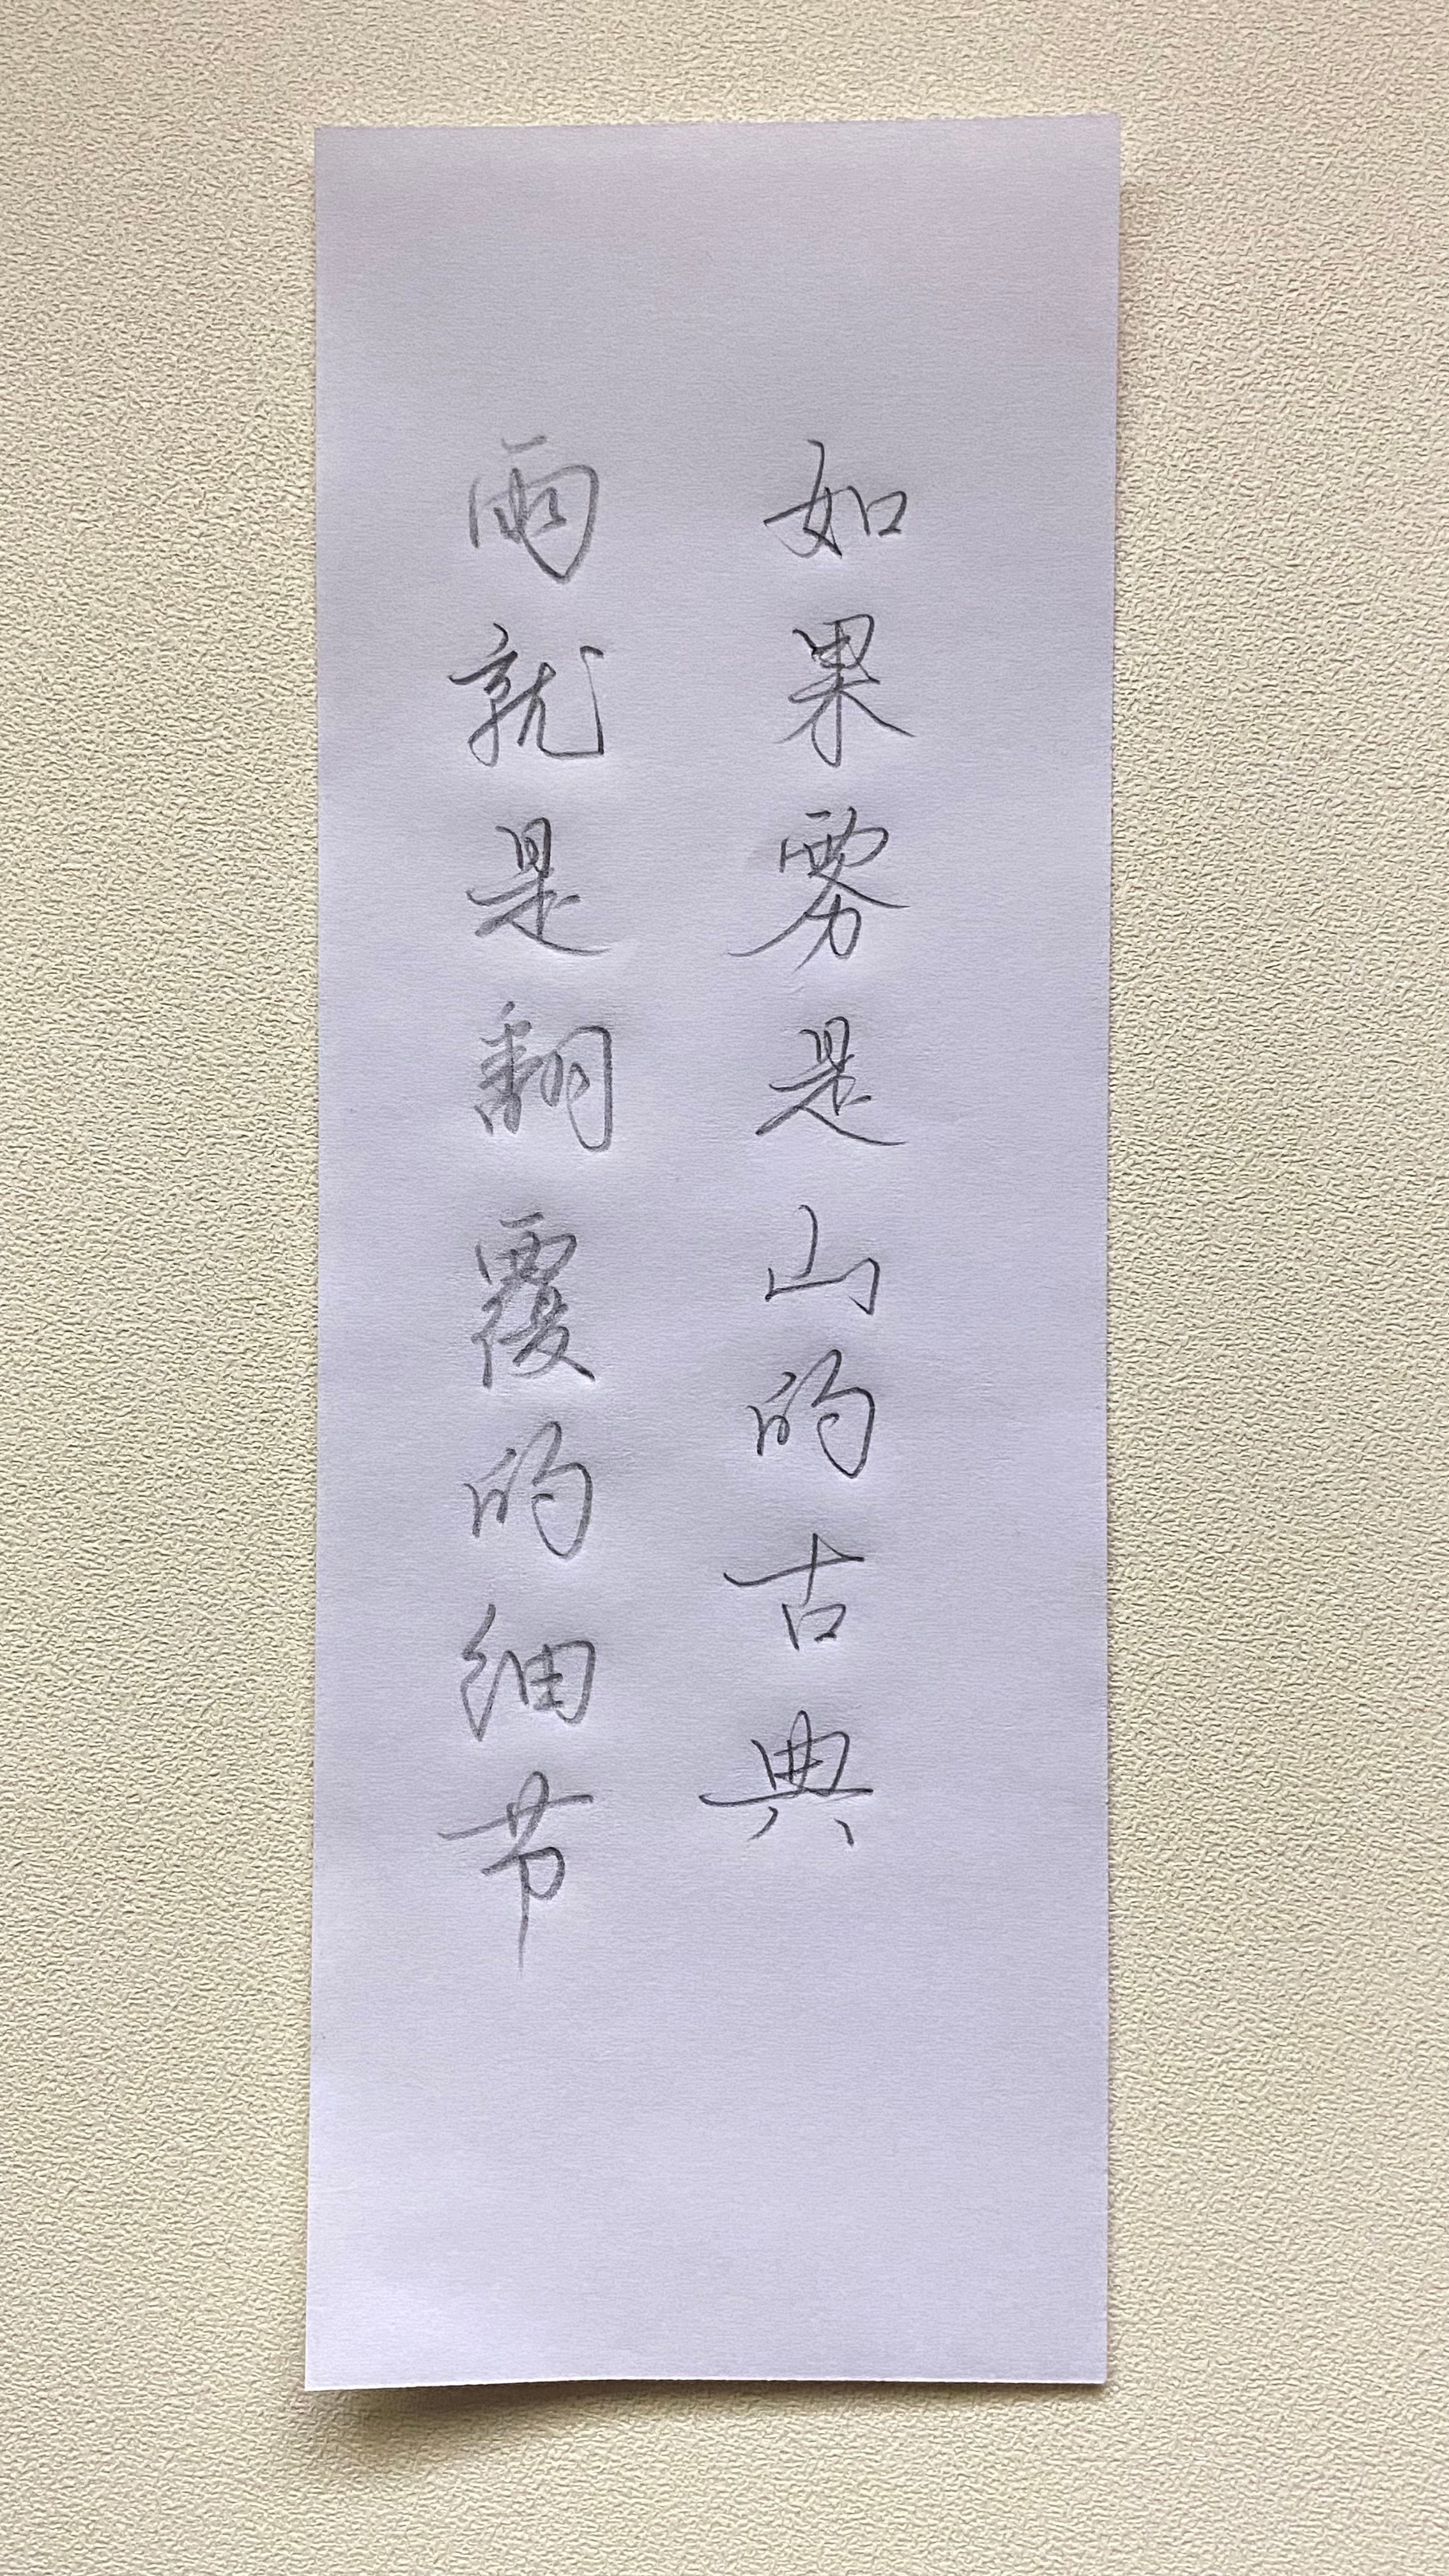 如果雾是山的古典
雨就是翻覆的细节